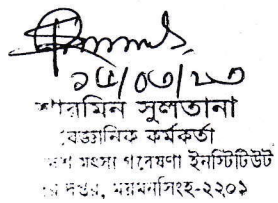 ১৫/০৩/২৩
শারমিন সুলতানা
বৈজ্ঞানিক কর্মকর্তা
মৎস্য গবেষণা ইনস্টিটিউট
দপ্তর, ময়মনসিংহ-২২০১